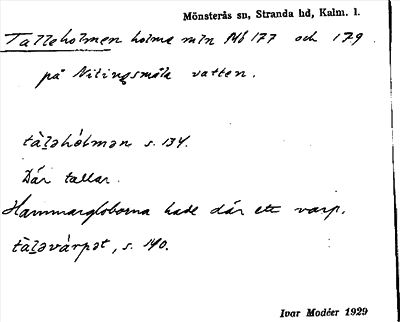 Mönsterås sn, Stranda hd, Kalm. l.
Talleholmen holme m/n Mb 177 och 179.
på Nilingsmåla vatten.
tàl̥əhól̥mən s. 134.
Där tallar.
Hammarglob­orna hade där ett varp.
tàl̥əvárpət, s. 140.
Ivar Modéer 1929